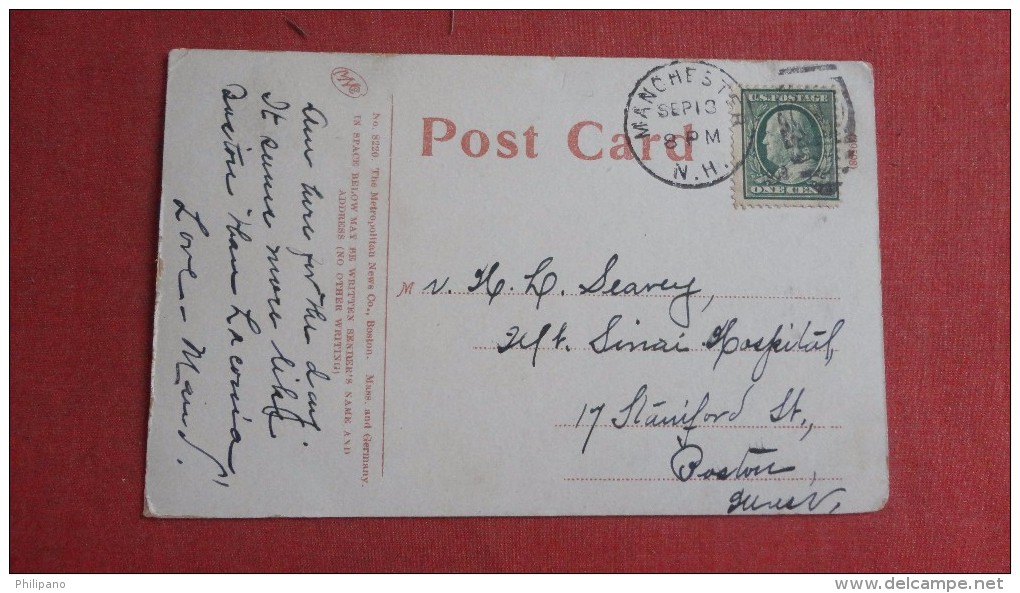 Am here for the day.
It seems more like
Boston than Laconia
Love - Maud.
No. 8220. The Metropolitan News Co., Boston. Mass. and Germany.
IN SPACE BELOW MAY BE WRITTEN SENDER'S NAME AND
ADDRESS (NO OTHER WRITING)
Post Card
MANCHESTER
SEP 13
8 PM
N.H.
U.S. POSTAGE
ONE CENT
Mr. H. L. Seavey,
Mt. Sinai Hospital,
17 Staniford St.,
Boston,
Mass.
Philipano
www.delcampe.net